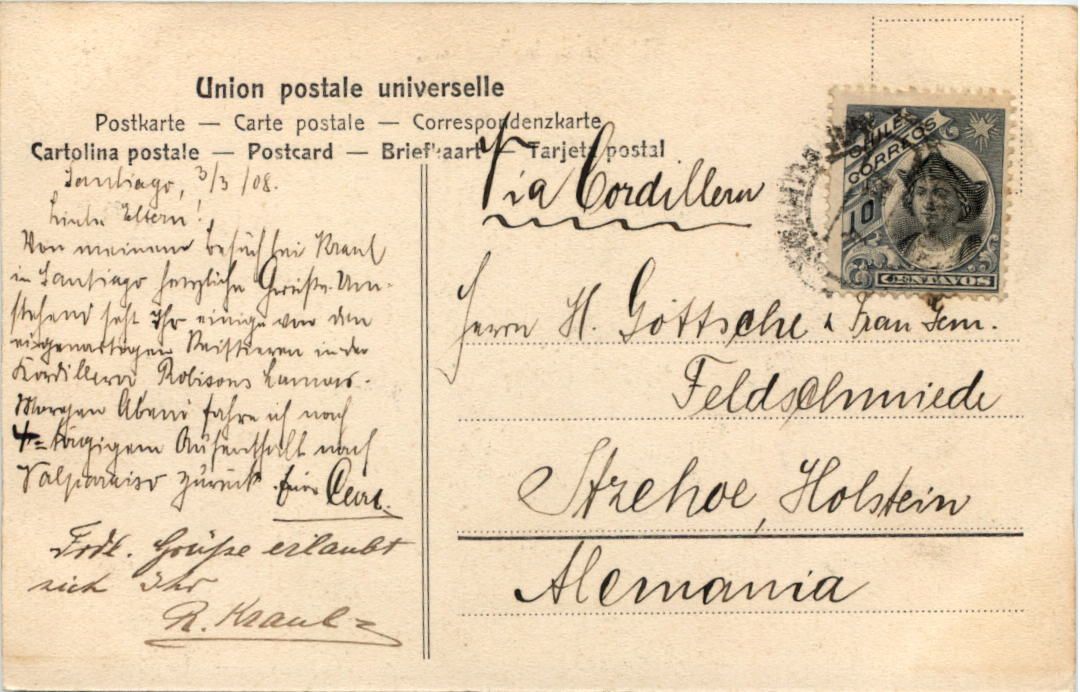 Union postale universelle
Postkarte — Carte postale — Correspondenzkarte
Cartolina postale — Postcard — Briefkaart — Tarjeta postal
Santiago, 3/3/08.
Liebe Eltern!
Von meinem Besuch bei Kraul
in Santiago herzliche Grüße. Um-
stehend seht Ihr einige von den
eigenartigen Reittieren in der
Kordillere Lamas.
Morgen Abend fahre ich nach
4=tägigem Aufenthalt nach
Valparaiso zurück. Euer Curt.
Frdl. Grüße erlaubt
sich Ihr
R. Kraul
Via Cordillera
CHILE
CORREOS
10
CENTAVOS
Herrn H. Göttsche & Frau Gem.
Feldschmiede
Itzehoe, Holstein
Alemania